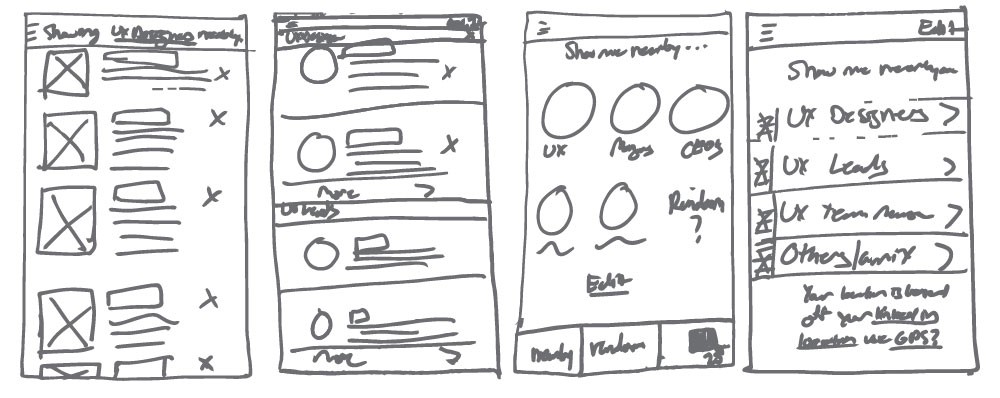 Showing UX Designers nearby.
Designers
Edit
More
UX Leads
More
Show me nearby...
UX
CEOs
Random
?
Edit
nearby
random
25
Edit
Show me nearby
UX Designers
UX Leads
UX Team
Others/a mix
Your location is based
off your LinkedIn
location use GPS?